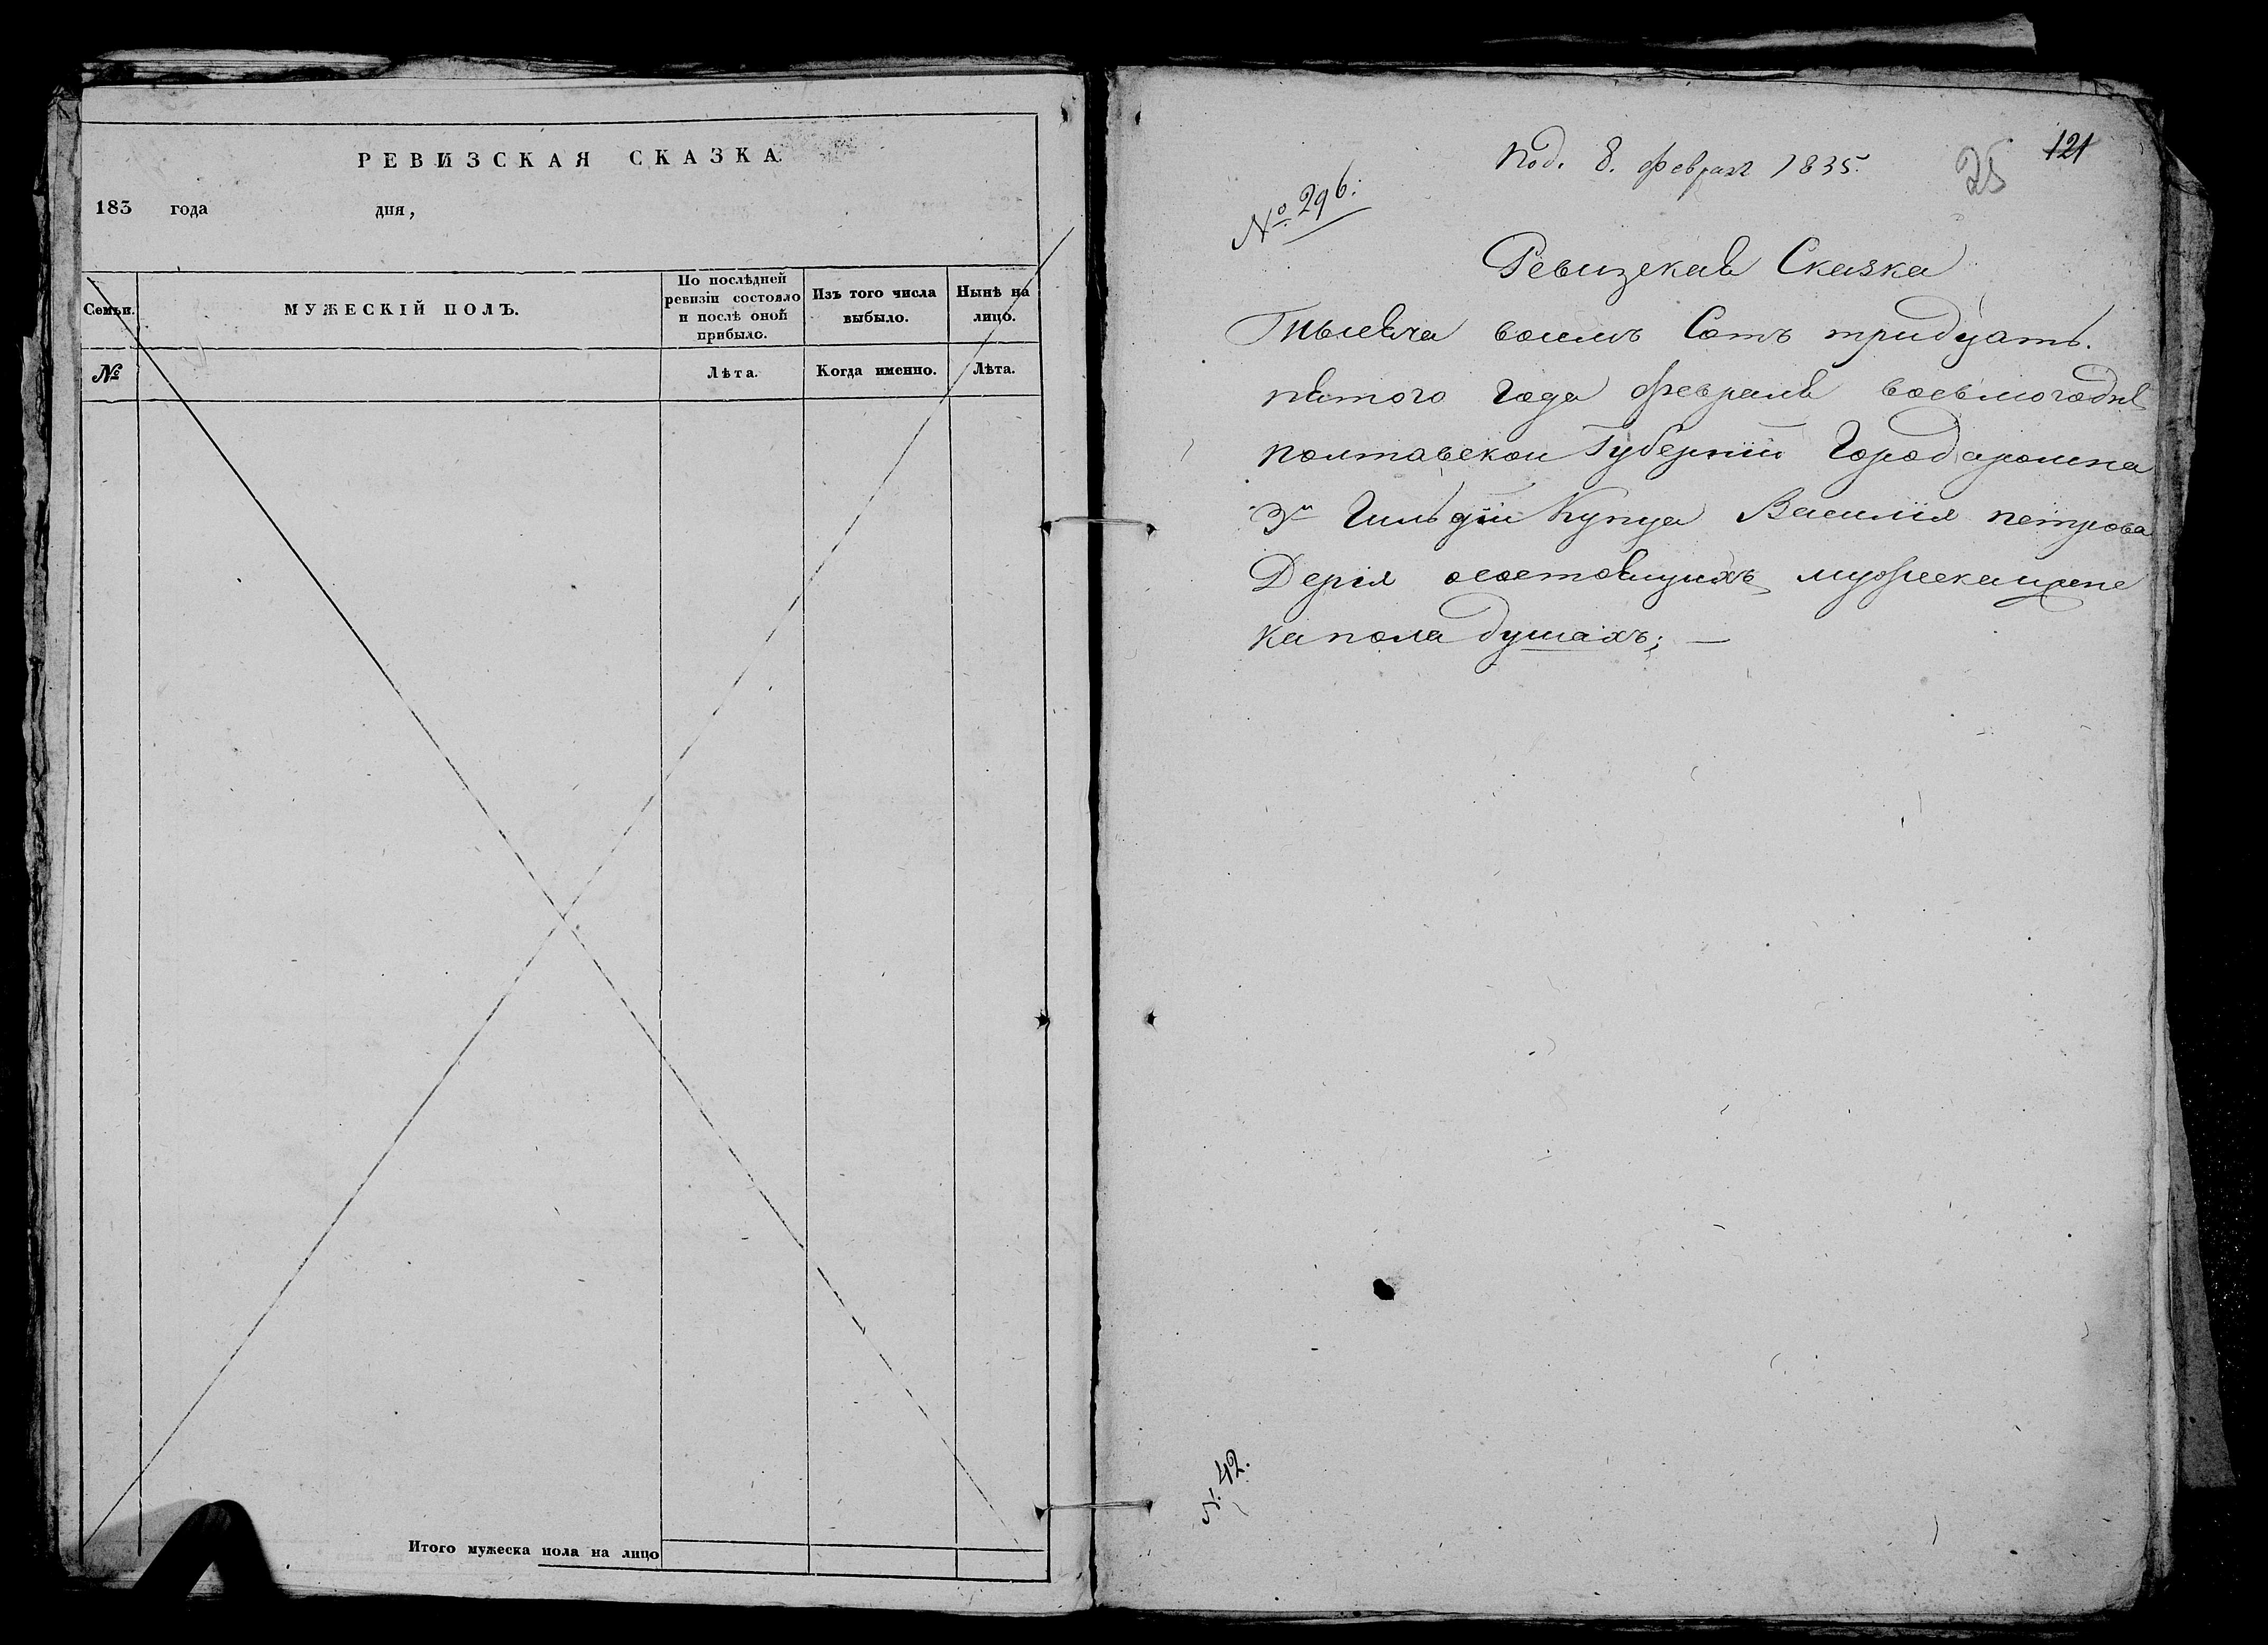 РЕВИЗСКАЯ СКАЗКА.
183 года дня,
Семьи.
МУЖЕСКІЙ ПОЛЪ.
По послѣдней
ревизіи состояло
и послѣ оной
прибыло.
Изъ того числа
выбыло.
Нынѣ на
лицо.
№
Лѣта.
Когда именно.
Лѣта.
Итого мужеска пола на лицо
121
25
Под. 8. февраля 1835.
№ 296.
Ревизская Сказка
Тысяча восемъ Сотъ тридцать.
пятого года февраля восьмогодня
полтавской Губерніи Города ромна
3й Гильдіи Купца Василія петрова
Дерія осостоящихъ мужескаижене
ка пола душахъ; —
№. 42.